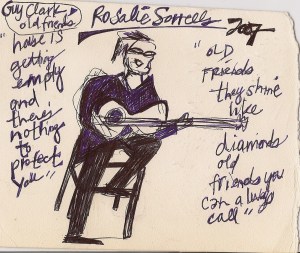 Guy Clark
old friends
Rosalie Sorrels
2007
"house is
getting
empty
and
there's
nothing
to
protect
you"
"OLD
FRIENDS
they shine
like
diamonds
old
friends you
can always
call"